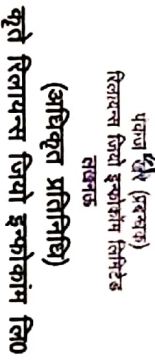 पंकज (प्रबन्धक)
रिलायन्स जियो इन्फोकॉम लिमिटेड
लखनऊ
(अधिकृत प्रतिनिधि)
कृते रिलायन्स जियो इन्फोकाम लि0